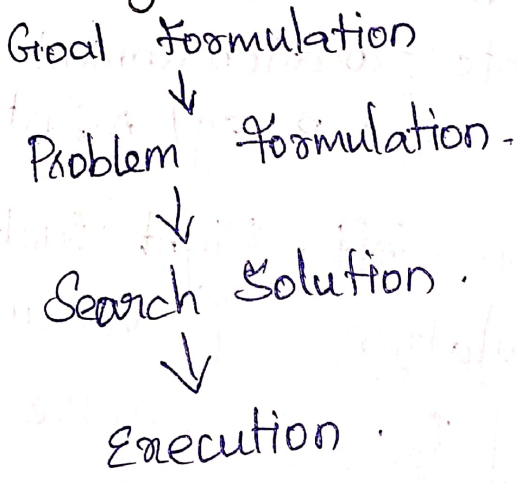 Goal Formulation
↓
Problem Formulation.
↓
Search Solution.
↓
Execution.